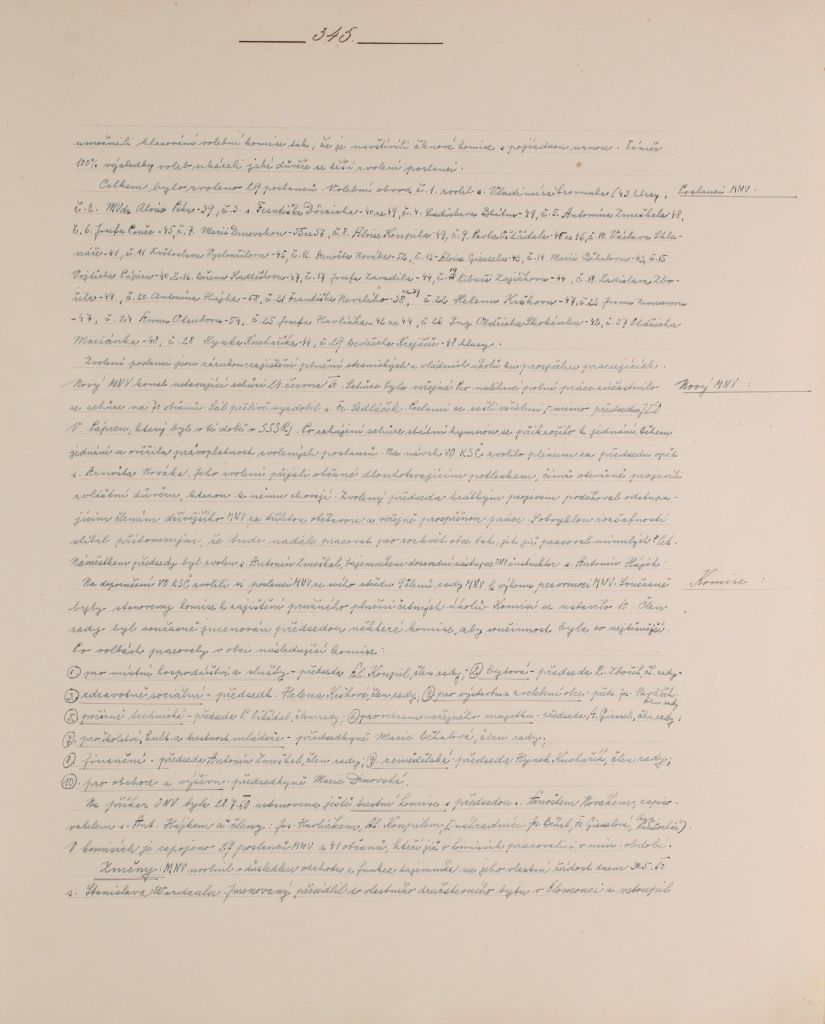 345.
umožnili hlasování volební komise tak, že je navštívili členové komise s pojízdnou urnou. Téměř
100% výsledky voleb ukázali jaké důvěře se těší zvolení poslanci.
Celkem bylo zvoleno 29 poslanců. Volební obvod č. 1. zvolil s. Vladimíra (43 hlasy, Poslanci MNV.
č. 2. MUDr Aloise - 39, č. 3. s Františka - 40 ze 49, č. 4. Ladislava - 49, č. 5. Antonína Zmeškala 48,
č. 6. Josefa - 45, č. 7. Marii Drnovskou - 55 ze 56, č. 8. Aloise Koupila 49, č. 9. Pavla Ošťádala 45 ze 46, č. 10 Václava
- 41, č. 11 - 45, č. 12. Arnošta Nováka - 52, č. 13 - Aloise Giesela - 43, č. 14 Marii - 43, č. 15
Vojtěcha Pápicu - 40, č. 16. Kadlčíkovu - 47, č. 17 Josefa Zavadila - 44, č. 18 Libuši Zajíčkovu - 44, č. 19. Ladislava Zbo-
řila - 49, č. 20. Antonína Hájka - 58, č. 21 Františka - 38, č. 22 Helenu Krškovu - 47, č. 23
- 47, č. 24 Annu - 54, č. 25 Josefa Havlíčka - 42 ze 44, č. 26 Ing Oldřicha Skopánka - 42, č. 27 Oldřicha
Mariánka - 48, č. 28 Hynka Kuchaříka - 44, č. 29 Bedřicha Krejčíře - 48 hlasy.
Zvolení poslanci jsou zárukou zajištění plnění stranických a vládních úkolů ku prospěchu pracujících.
Nový MNV konal ustavující schůzi 24. června 60. Schůze byla veřejná. Pro naléhavé polní práce zúčastnilo Nový MNV:
se schůze na 70 občanů. Sál pečlivě vyzdobil s. Fr. Sedláček. Poslanci se sešli všichni, mimo předsedu JZD
V. Pápicu, který byl v té době v SSSR). Po zahájení schůze státní hymnou se přikročilo k jednání. Během
jednání se ověřila právoplatnost zvolených poslanců. Na návrh VO KSČ zvolilo plénum za předsedu opět
s. Arnošta Nováka. Jeho zvolení přijali občané dlouhotrvajícím potleskem, čímž otevřeně projevili
zvláštní důvěru, kterou k němu chovají. Zvolený předseda krátkým projevem poděkoval odstupu-
jícím členům dřívějšího MNV za a veřejně prospěšnou práci. rozšafností
slíbil přítomným, že bude nadále pracovat pro rozkvět obce tak, jak již pracoval minulých let.
Náměstkem předsedy byl zvolen s. Antonín Zmeškal, tajemníkem dosavadní zástupce instruktor s. Antonín Hájek.
Na doporučení VO KSČ zvolili si poslanci MNV ze svého středu 9 členů rady MNV k výkonu pravomoci MNV. Současně Komise:
byly stanoveny komise k zajištění pružného plnění četných úkolů. Komisí se ustavilo 10. Člen
rady byl současně jmenován předsedou některé komise, aby součinnost byla co nejtěsnější.
Po volbách pracovaly v obci následující komise:
1) pro místní hospodářství a služby - předseda Al. Koupil, člen rady; 2) bytová - předseda L. Zbořil, čl. rady -
3) zdravotně sociální - předsedk. Helena Kršková, člen rady, 4) pro výstavbu a zvelebení obce - předs. Jos. Havlíček, člen rady
5) požárně technická - předseda P. Ošťádal, člen rady; 6) pro ochranu veřejného majetku - předseda A. Giesel, člen rady;
7) pro školství, kult. a tělesnost mládeže - předsedkyně Marie, člen rady;
8) finanční - předseda Antonín Zmeškal, člen rady; 9. zemědělská předseda Hynek Kuchařík, člen rady;
10) pro obchod a výživu - předsedkyně Marie Drnovská.
Na příkaz ONV byla 28.7.60 ustanovena ještě trestní komise s předsedou s. Arnoštem Novákem, zapiso-
vatelem s. Ant. Hájkem a členy: Jos. Havlíčkem, Al. Koupilem, (náhradníci: Giesela,
V komisích je zapojeno 27 poslanců MNV a 41 občanů, kteří již v komisích pracovali i v min. období.
Změny. MNV uvolnil v důsledku odchodu z funkce tajemníka na jeho vlastní žádost dnem 31.5.60
s. Stanislava Wardzalu. Jmenovaný přesídlil do vlastního družstevního bytu v Olomouci a vstoupil